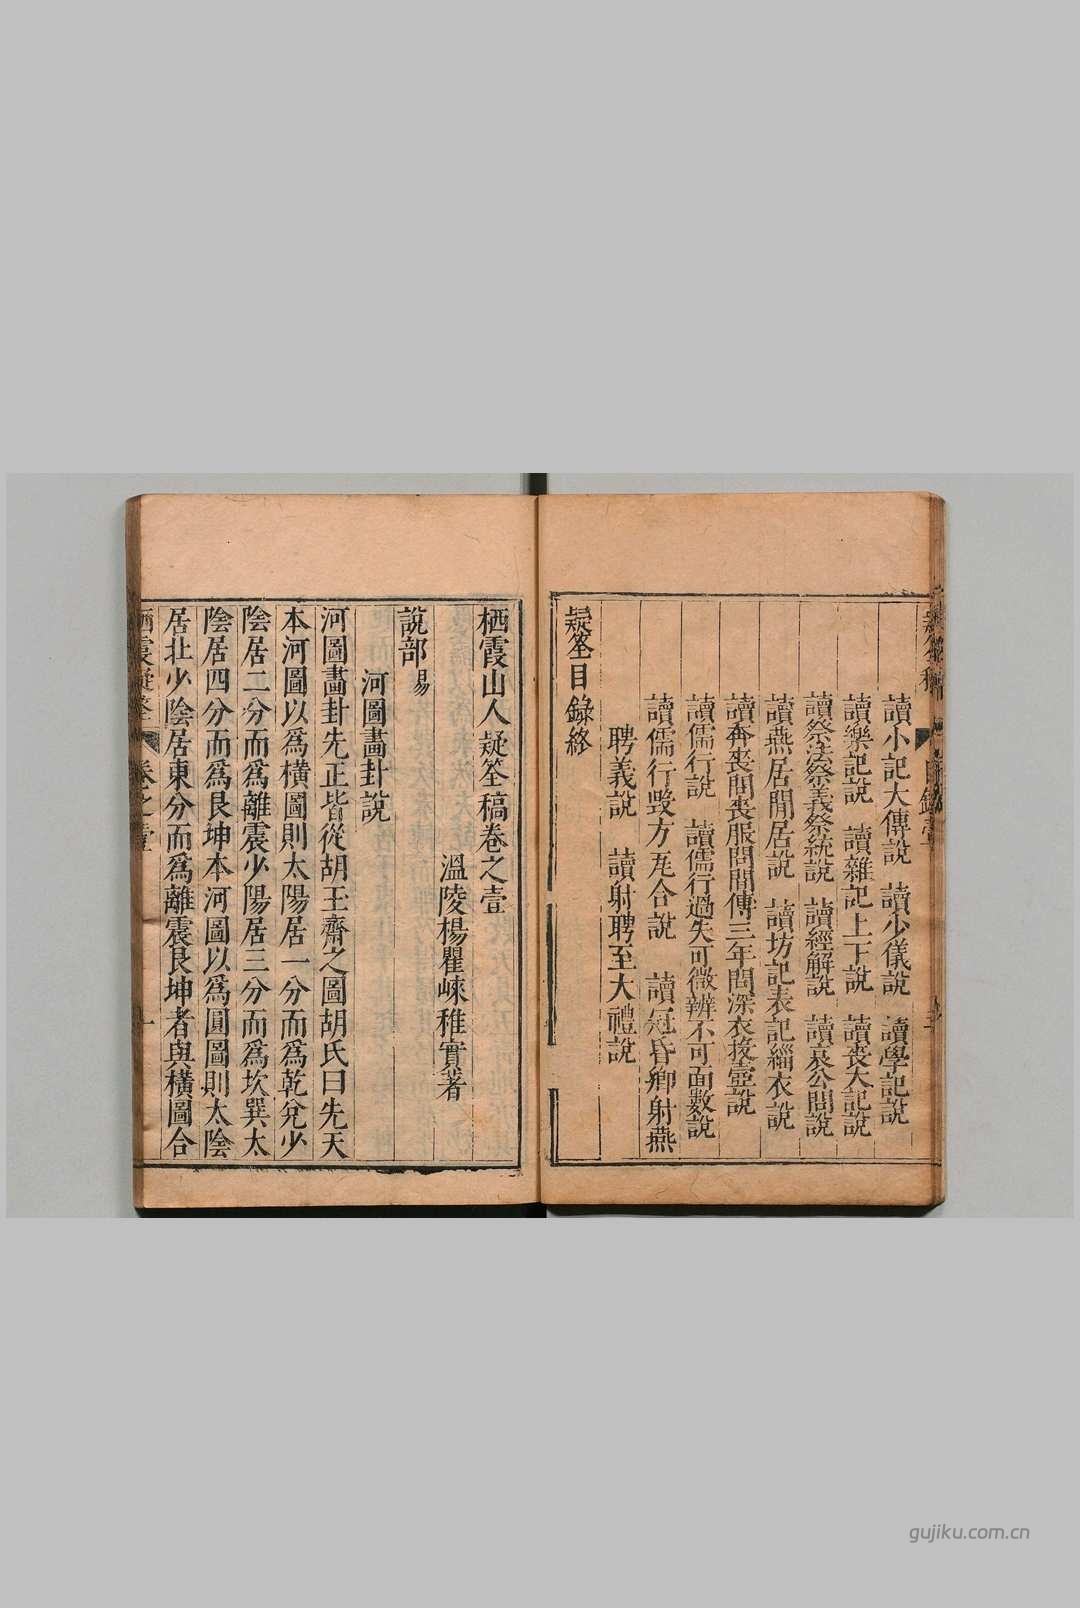 讀小記大傳說　讀少儀說　讀學記說
讀樂記說　讀雜記上下說　讀喪大記說
讀祭法祭義祭統說　讀經解說　讀哀公問說
讀燕居閒居說　讀坊記表記緇衣說
讀奔喪問喪服問閒傳三年問深衣投壺說
讀儒行說　讀儒行過失可微辨不可面數說
讀儒行毀方瓦合說　讀冠昏鄉射燕
聘義說　讀射聘至大禮說
疑筌目錄終
栖霞山人疑筌稿卷之壹
溫陵楊瞿崍稚實著
說部易
河圖畫卦說
河圖畫卦先正皆從胡玉齋之圖胡氏曰先天
本河圖以爲橫圖則太陽居一分而爲乾兌少
陰居二分而爲離震少陽居三分而爲坎巽太
陰居四分而爲艮坤本河圖以爲圓圖則太陰
居北少陰居東分而爲離震艮坤者與橫圖合
栖霞疑筌　卷之壹　一
gujiku.com.cn